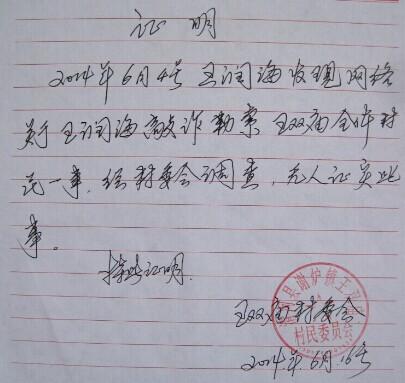 证明
2014年6月4号王润海发现网络
关于王润海敲诈勒索王双庙全体村
民一事，经村委会调查，无人证实此
事。
特此证明.
王双庙村委会
2014年6月16号
县谢炉镇王双
村民委员会